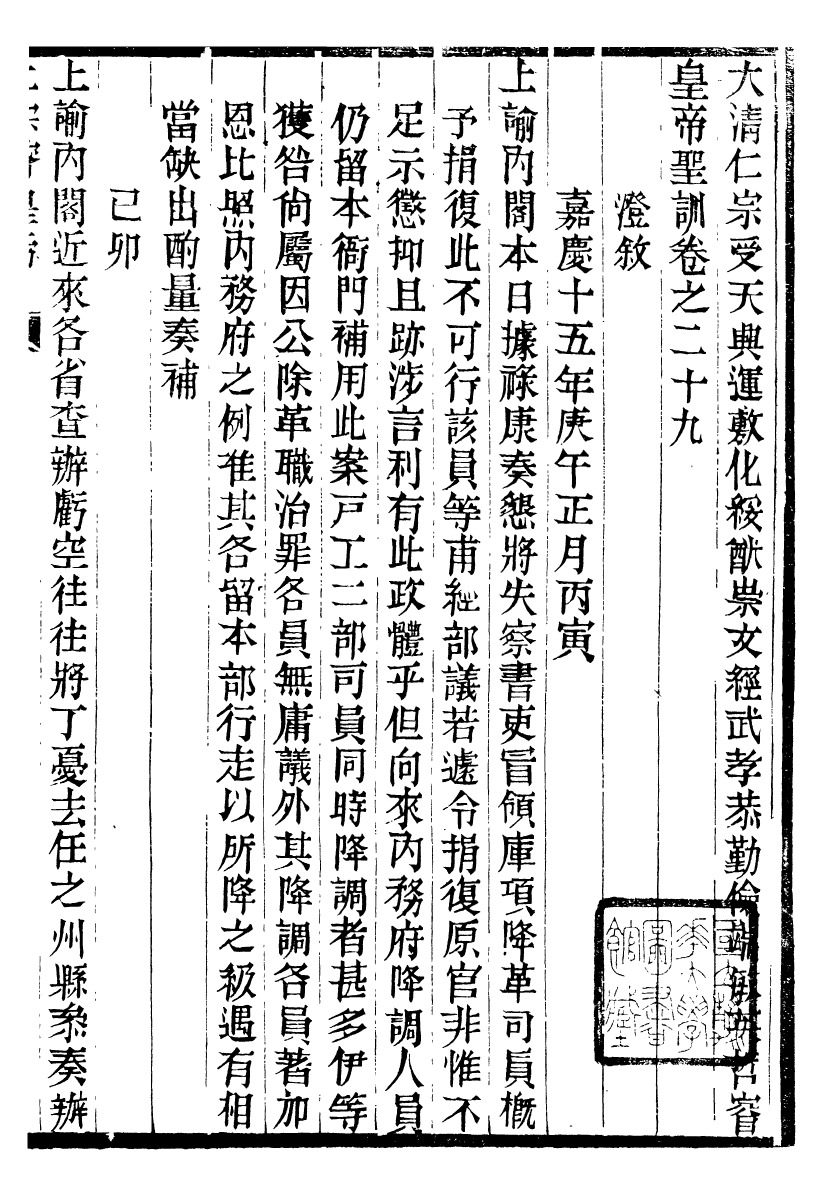 大清仁宗受天興運敷化綏猷崇文經武孝恭勤儉端敏英哲睿
皇帝聖訓卷之二十九
澄敘
嘉慶十五年庚午正月丙寅
上諭內閣本日據祿康奏懇將失察書吏冒領庫項降革司員槪
予捐復此不可行該員等甫經部議若遽令捐復原官非惟不
足示懲抑且跡涉言利有此政體乎但向來內務府降調人員
仍留本衙門補用此案戸工二部司員同時降調者甚多伊等
獲咎尙屬因公除革職治罪各員無庸議外其降調各員著加
恩比照內務府之例准其各留本部行走以所降之級遇有相
當缺出酌量奏補
己卯
上諭內閣近來各省查辦虧空往往將丁憂去任之州縣叅奏辦